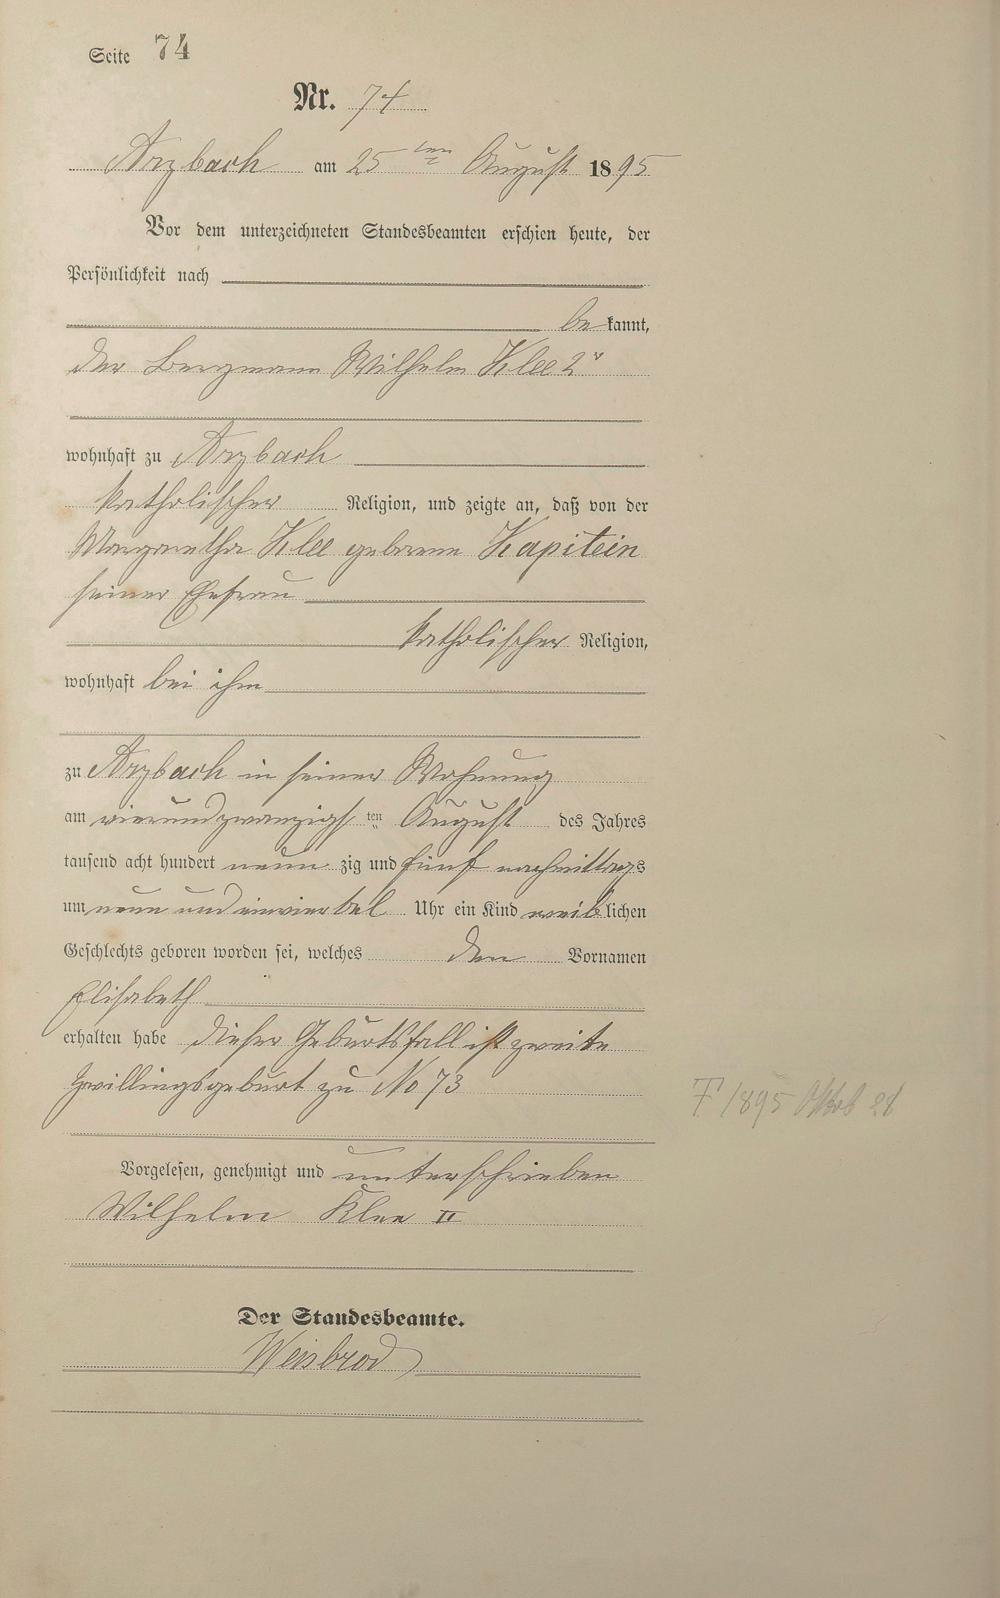 Seite 74
Nr. 74
Arzbach am 25 ten August 1895
Vor dem unterzeichneten Standesbeamten erschien heute, der
Persönlichkeit nach
bekannt,
der Bergmann Wilhelm Klee 2r
wohnhaft zu Arzbach
katholischer Religion, und zeigte an, daß von der
Margaretha Klee geborene Kapitein
seiner Ehefrau
katholischer Religion,
wohnhaft bei ihm
zu Arzbach in seiner Wohnung
am vierundzwanzigsten August des Jahres
tausend acht hundert neunzig und fünf nachmittags
um neun und einviertel Uhr ein Kind weiblichen
Geschlechts geboren worden sei, welches den Vornamen
Elisabeth
erhalten habe dieser Geburtsfall ist zweite
Zwillingsgeburt zu No 73
† 1895 Oktob 28
Vorgelesen, genehmigt und unterschrieben
Wilhelm Klee II
Der Standesbeamte.
Weisbrod